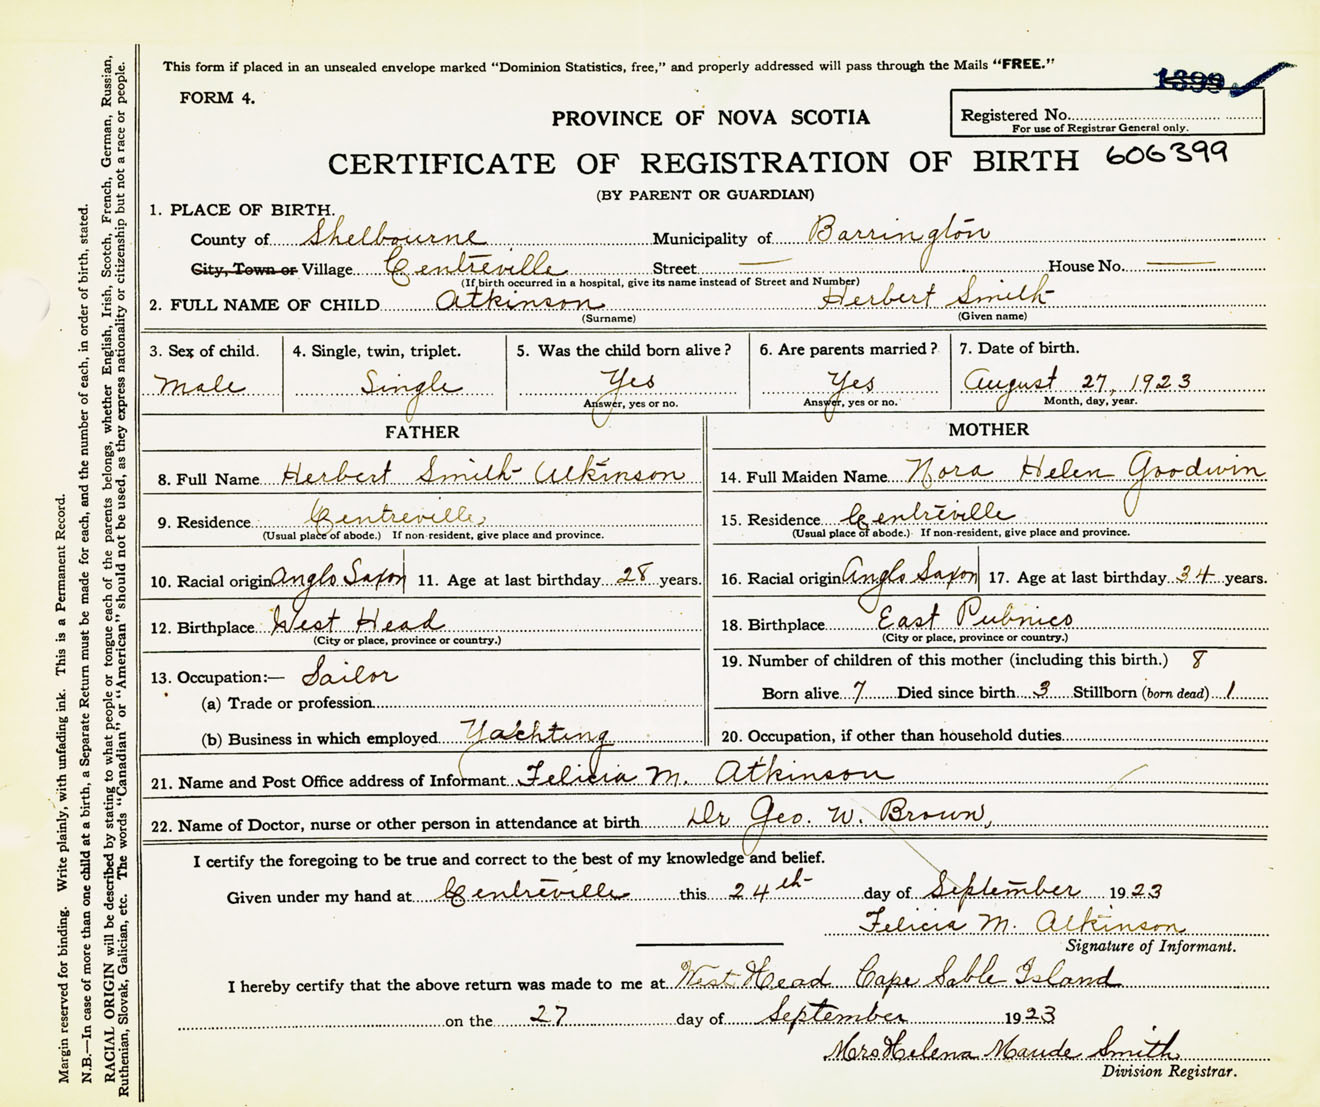 This form if placed in an unsealed envelope marked "Dominion Statistics, free," and properly addressed will pass through the Mails "FREE."
1399
FORM 4.
PROVINCE OF NOVA SCOTIA
Registered No.
For use of Registrar General only.
CERTIFICATE OF REGISTRATION OF BIRTH 606399
(BY PARENT OR GUARDIAN)
1. PLACE OF BIRTH.
County of Shelbourne Municipality of Barrington
City, Town or Village Centreville Street — House No. —
(If birth occurred in a hospital, give its name instead of Street and Number)
2. FULL NAME OF CHILD Atkinson Herbert Smith
(Surname) (Given name)
3. Sex of child. 4. Single, twin, triplet. 5. Was the child born alive? 6. Are parents married? 7. Date of birth.
Male Single Yes Yes August 27, 1923
Answer, yes or no. Answer, yes or no. Month, day, year.
FATHER MOTHER
8. Full Name Herbert Smith Atkinson 14. Full Maiden Name Nora Helen Goodwin
9. Residence Centreville 15. Residence Centreville
(Usual place of abode.) If non-resident, give place and province. (Usual place of abode.) If non-resident, give place and province.
10. Racial origin Anglo Saxon 11. Age at last birthday 28 years. 16. Racial origin Anglo Saxon 17. Age at last birthday 34 years.
12. Birthplace West Head 18. Birthplace East Pubnico
(City or place, province or country.) (City or place, province or country.)
13. Occupation:— Sailor 19. Number of children of this mother (including this birth.) 8
(a) Trade or profession Born alive 7 Died since birth 3 Stillborn (born dead) 1
(b) Business in which employed Yachting 20. Occupation, if other than household duties
21. Name and Post Office address of Informant Felicia M. Atkinson
22. Name of Doctor, nurse or other person in attendance at birth Dr Geo. W. Brown,
I certify the foregoing to be true and correct to the best of my knowledge and belief.
Given under my hand at Centreville this 24th day of September 1923
Felicia M. Atkinson
Signature of Informant.
I hereby certify that the above return was made to me at West Head Cape Sable Island
on the 27 day of September 1923
Mrs Helena Maude Smith
Division Registrar.
Margin reserved for binding. Write plainly, with unfading ink. This is a Permanent Record.
N.B.—In case of more than one child at a birth, a Separate Return must be made for each, and the number of each, in order of birth, stated.
RACIAL ORIGIN will be described by stating to what people or tongue each of the parents belongs, whether English, Irish, Scotch, French, German, Russian,
Ruthenian, Slovak, Galician, etc. The words "Canadian" or "American" should not be used, as they express nationality or citizenship but not a race or people.